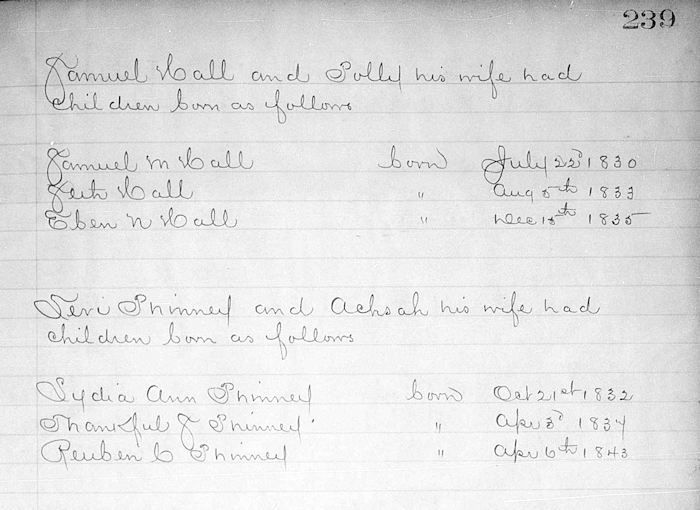 239
Samuel Hall and Polly his wife had
children born as follows
Samuel M Hall born July 22d 1830
Seth Hall " Aug 5th 1833
Eben N Hall " Dec 15th 1835
Levi Phinney and Achsah his wife had
children born as follows
Lydia Ann Phinney born Oct 21st 1832
Thankful J Phinney " Apr 3d 1834
Reuben C Phinney " Apr 6th 1843